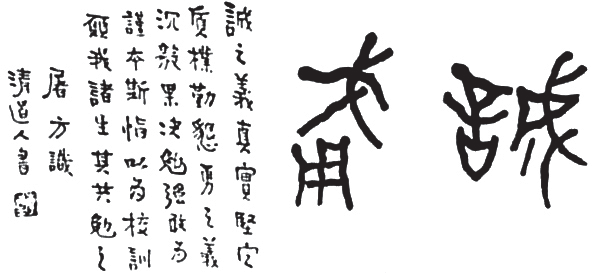 誠勇
誠之義真實堅定
質樸勤懇勇之義
沉毅果決勉強敢為
謹本斯恉以為校訓
願我諸生其共勉之
屠方識
清道人書